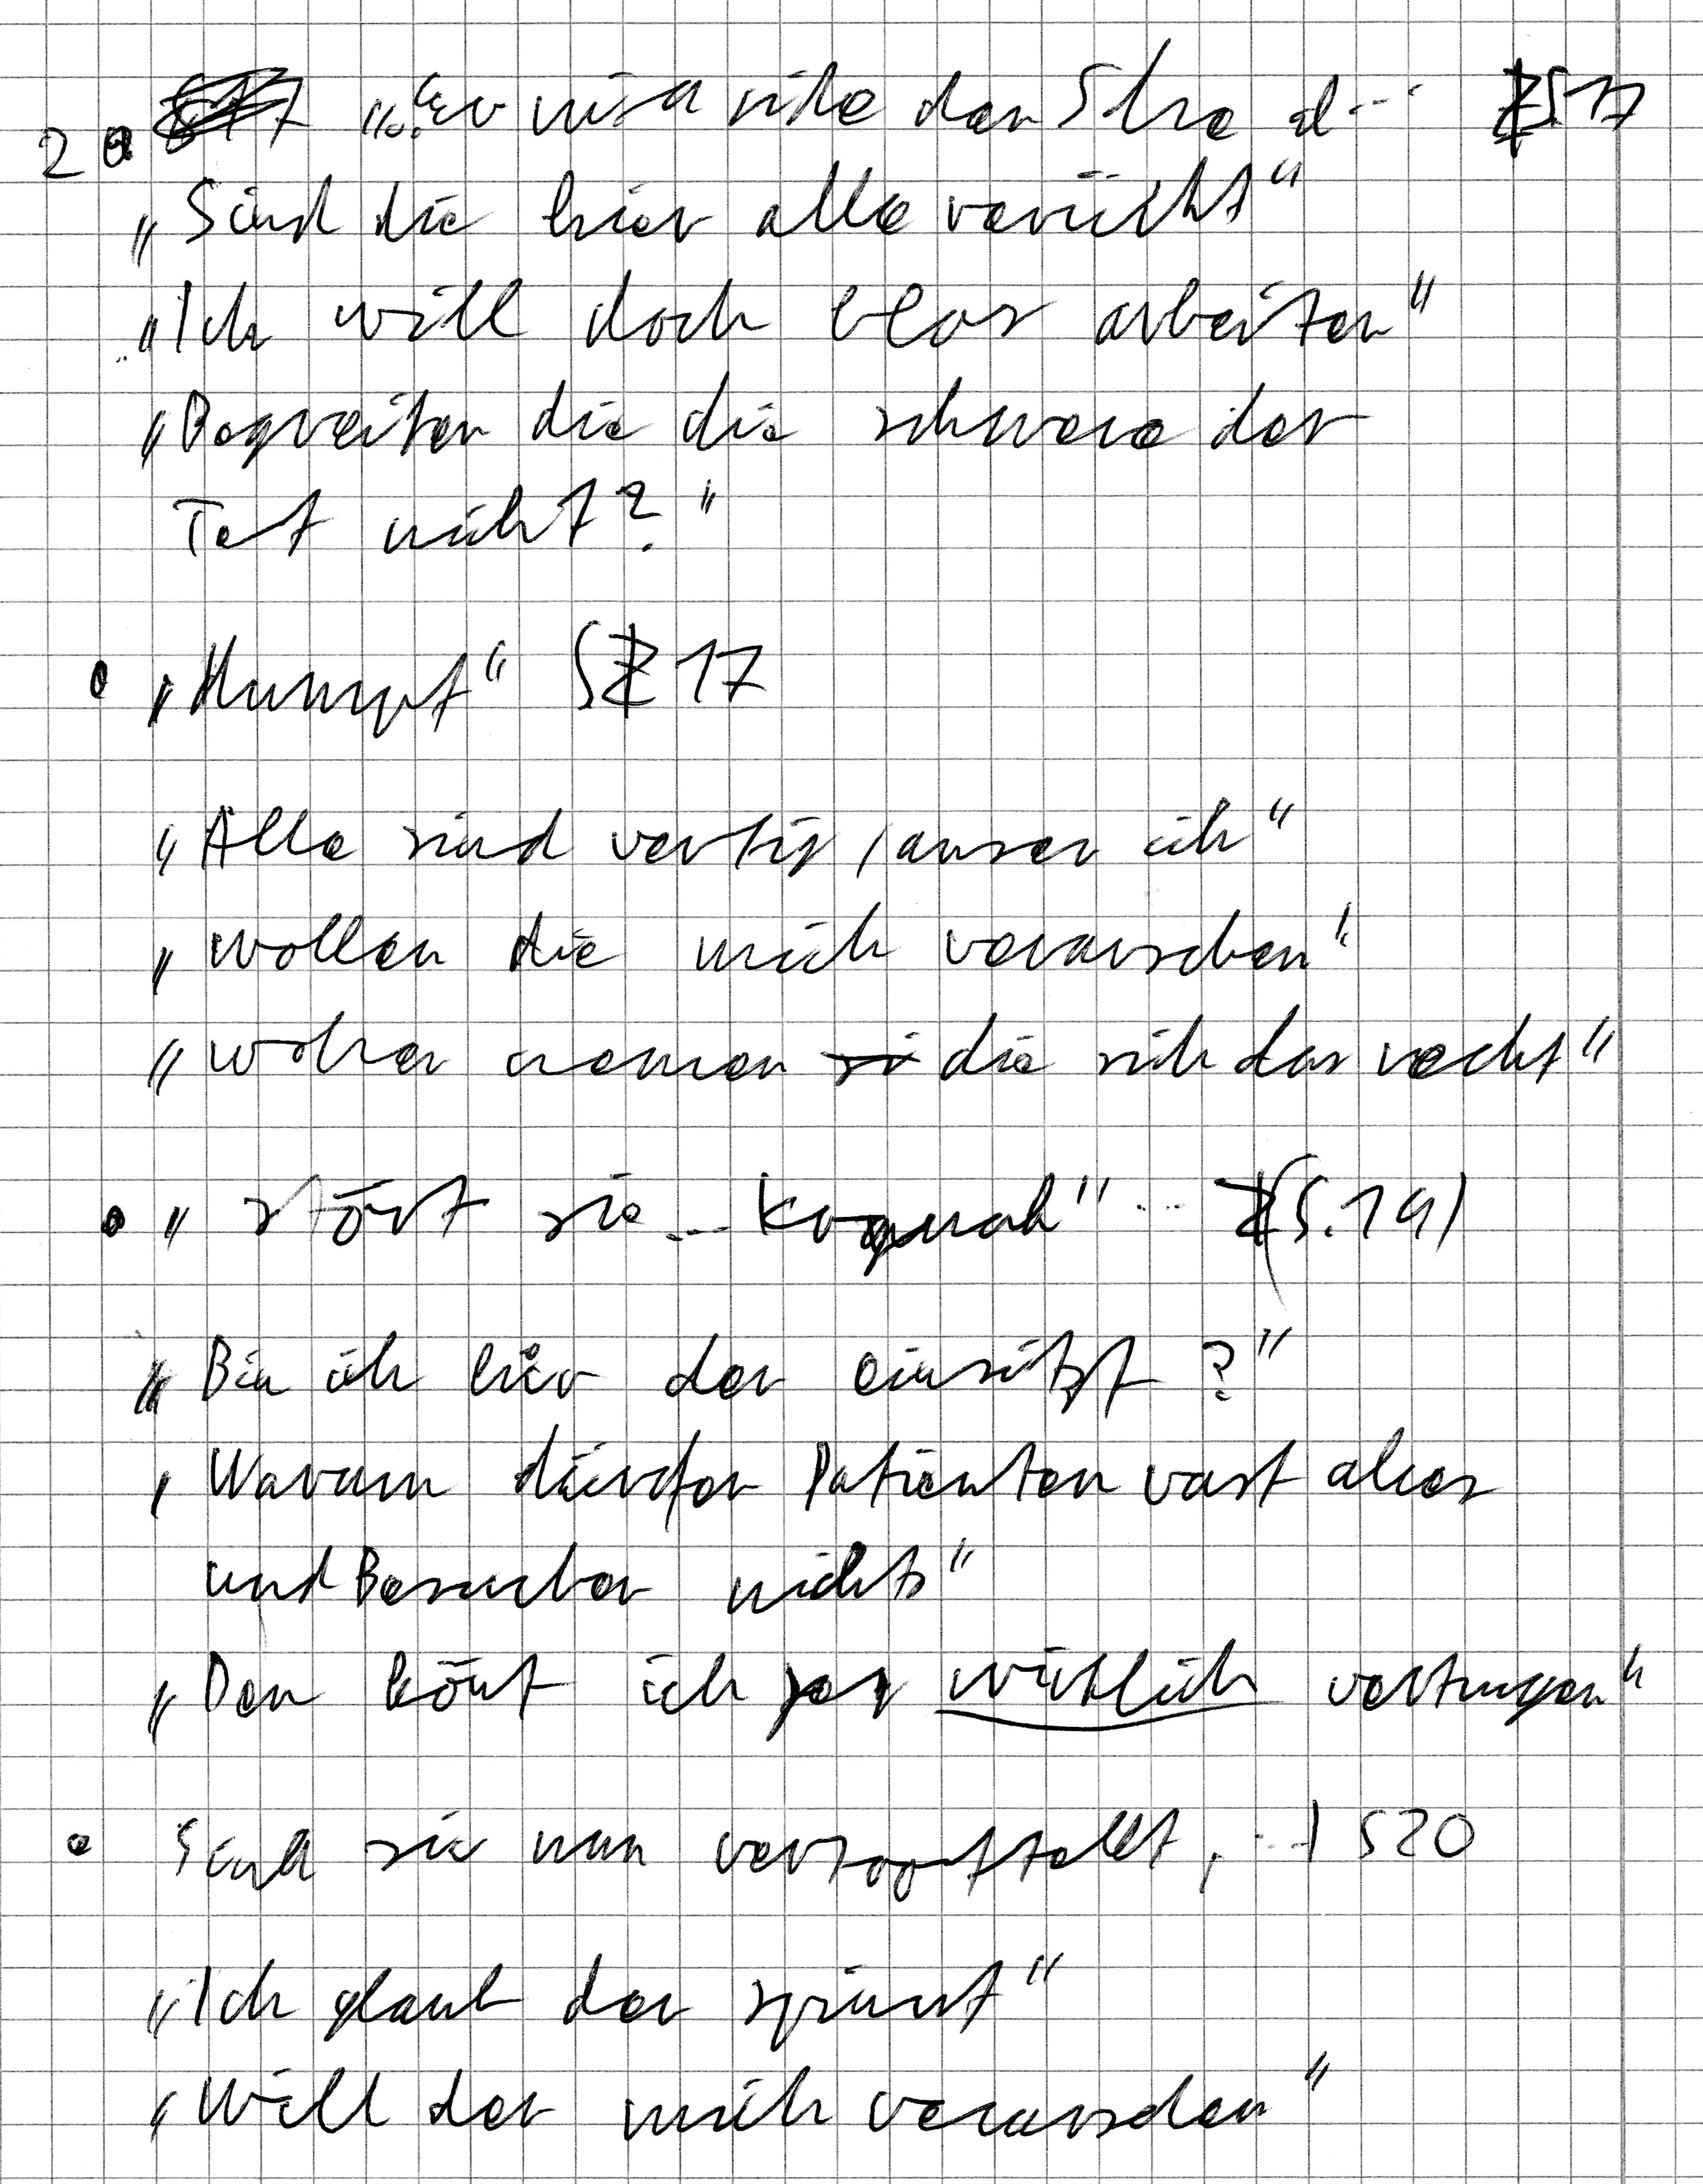 2. S17 „... er nicht die S17
„Sind die hier alle verücht“
„Ich will doch blos arbeiten“
„Begreifen die die schwere der
Tat nicht?“
• S 17
„Alle sind vertig, auser ich“
„Wollen die mich verarschen“
„Woher nemen die sich das recht“
• „stört sie ... Kognak“ ... (S.19)
„Bin ich hier der einsitzt?“
„Warum dürfen Patienten vast ales
und Besucher nichts“
„Den könt ich wirklich
• sie nun S20
„Ich glaub der spinnt“
„Will der mich verarschen“